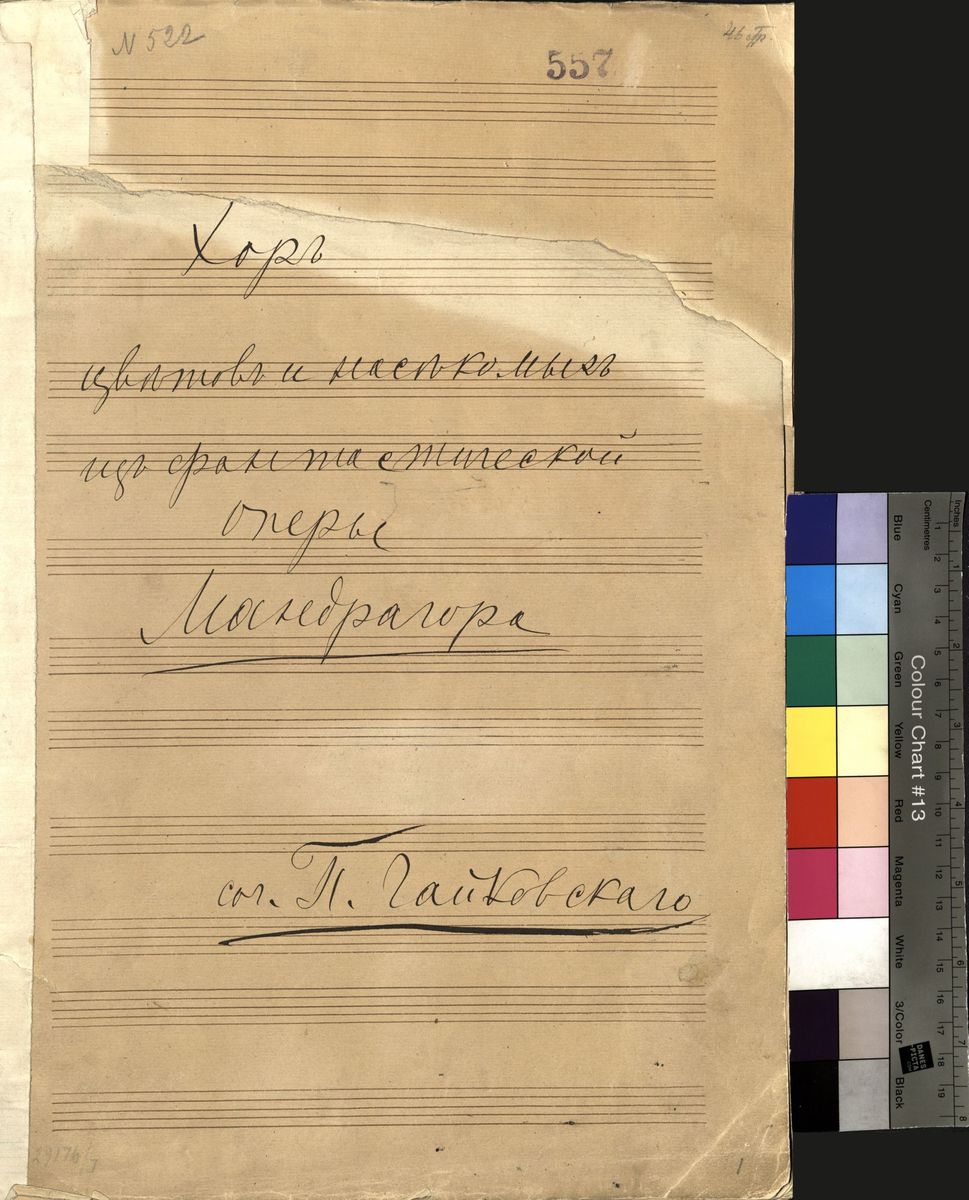 N 522
557
Хоръ
цвѣтовъ и насѣкомыхъ
изъ фантастической
оперы
Мандрагора
соч. П. Чайковскаго
1
Inches
Centimetres
Colour Chart #13
Blue
Cyan
Green
Yellow
Red
Magenta
White
3/Color
Black
DANES
-PICTA
1 2 3 4 5 6 7 8 9 10 11 12 13 14 15 16 17 18 19
1 2 3 4 5 6 7 8